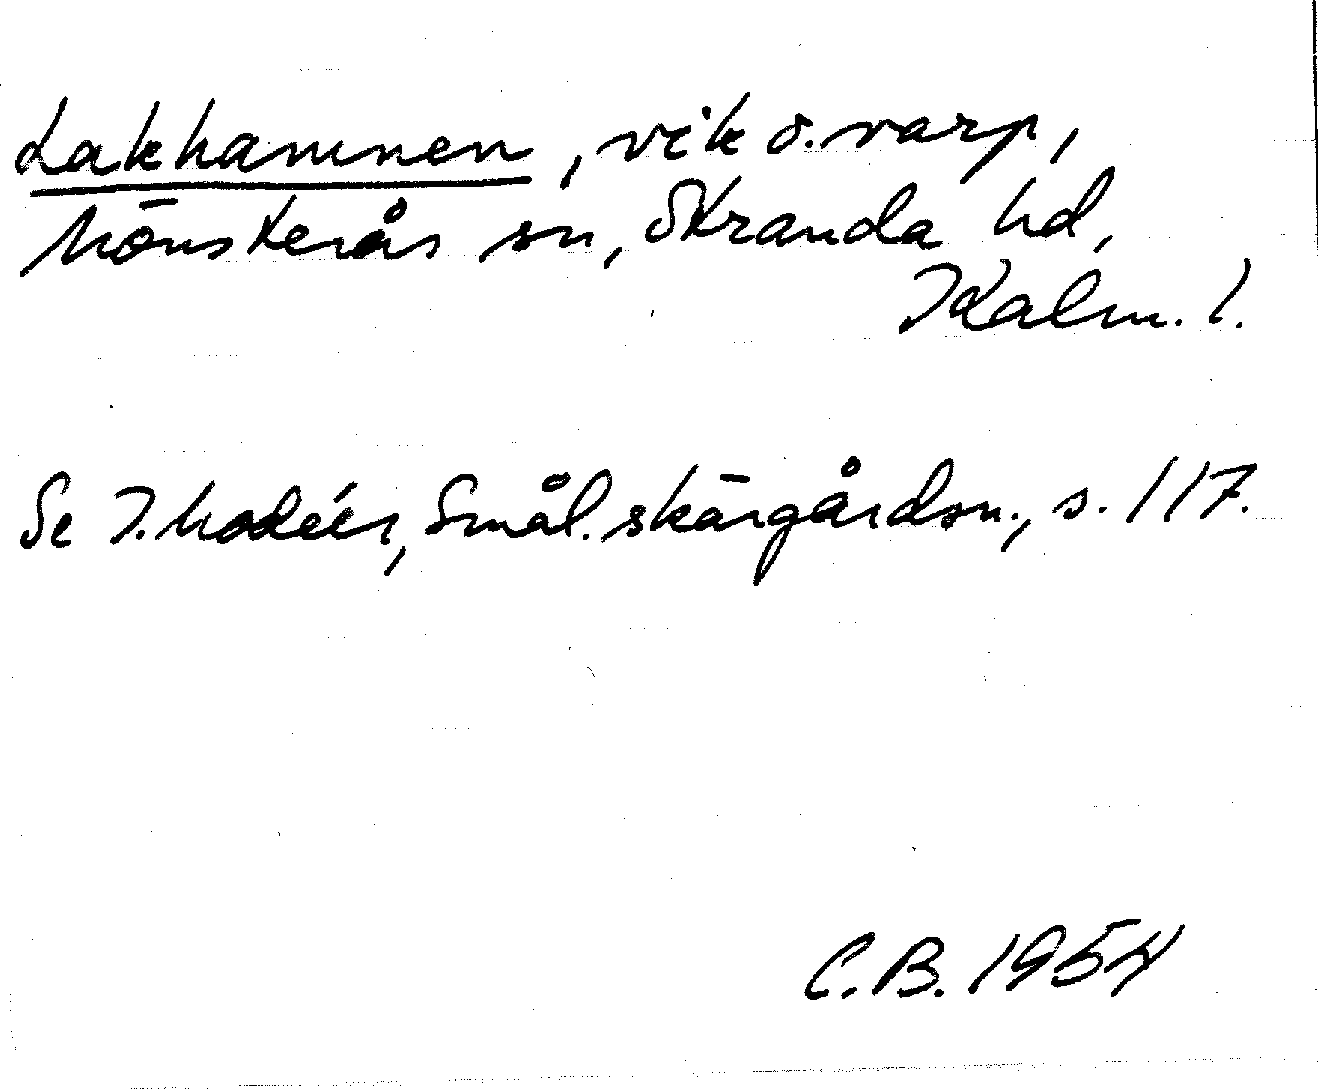 Lakhamnen, vik o. varp,
Mönsterås sn, Stranda hd,
Kalm. l.
Se I. Modéer, Smål. skärgårdsn., s. 117.
C.B. 1954